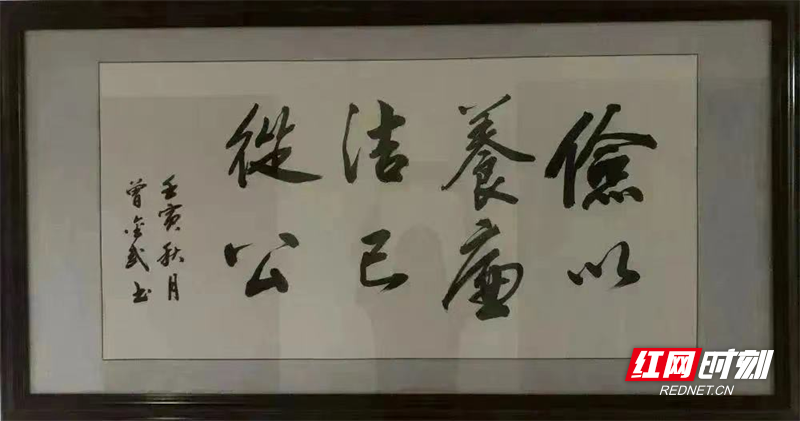 儉以
養廉
洁己
從公
壬寅秋月
曾金武书
红网时刻
REDNET.CN